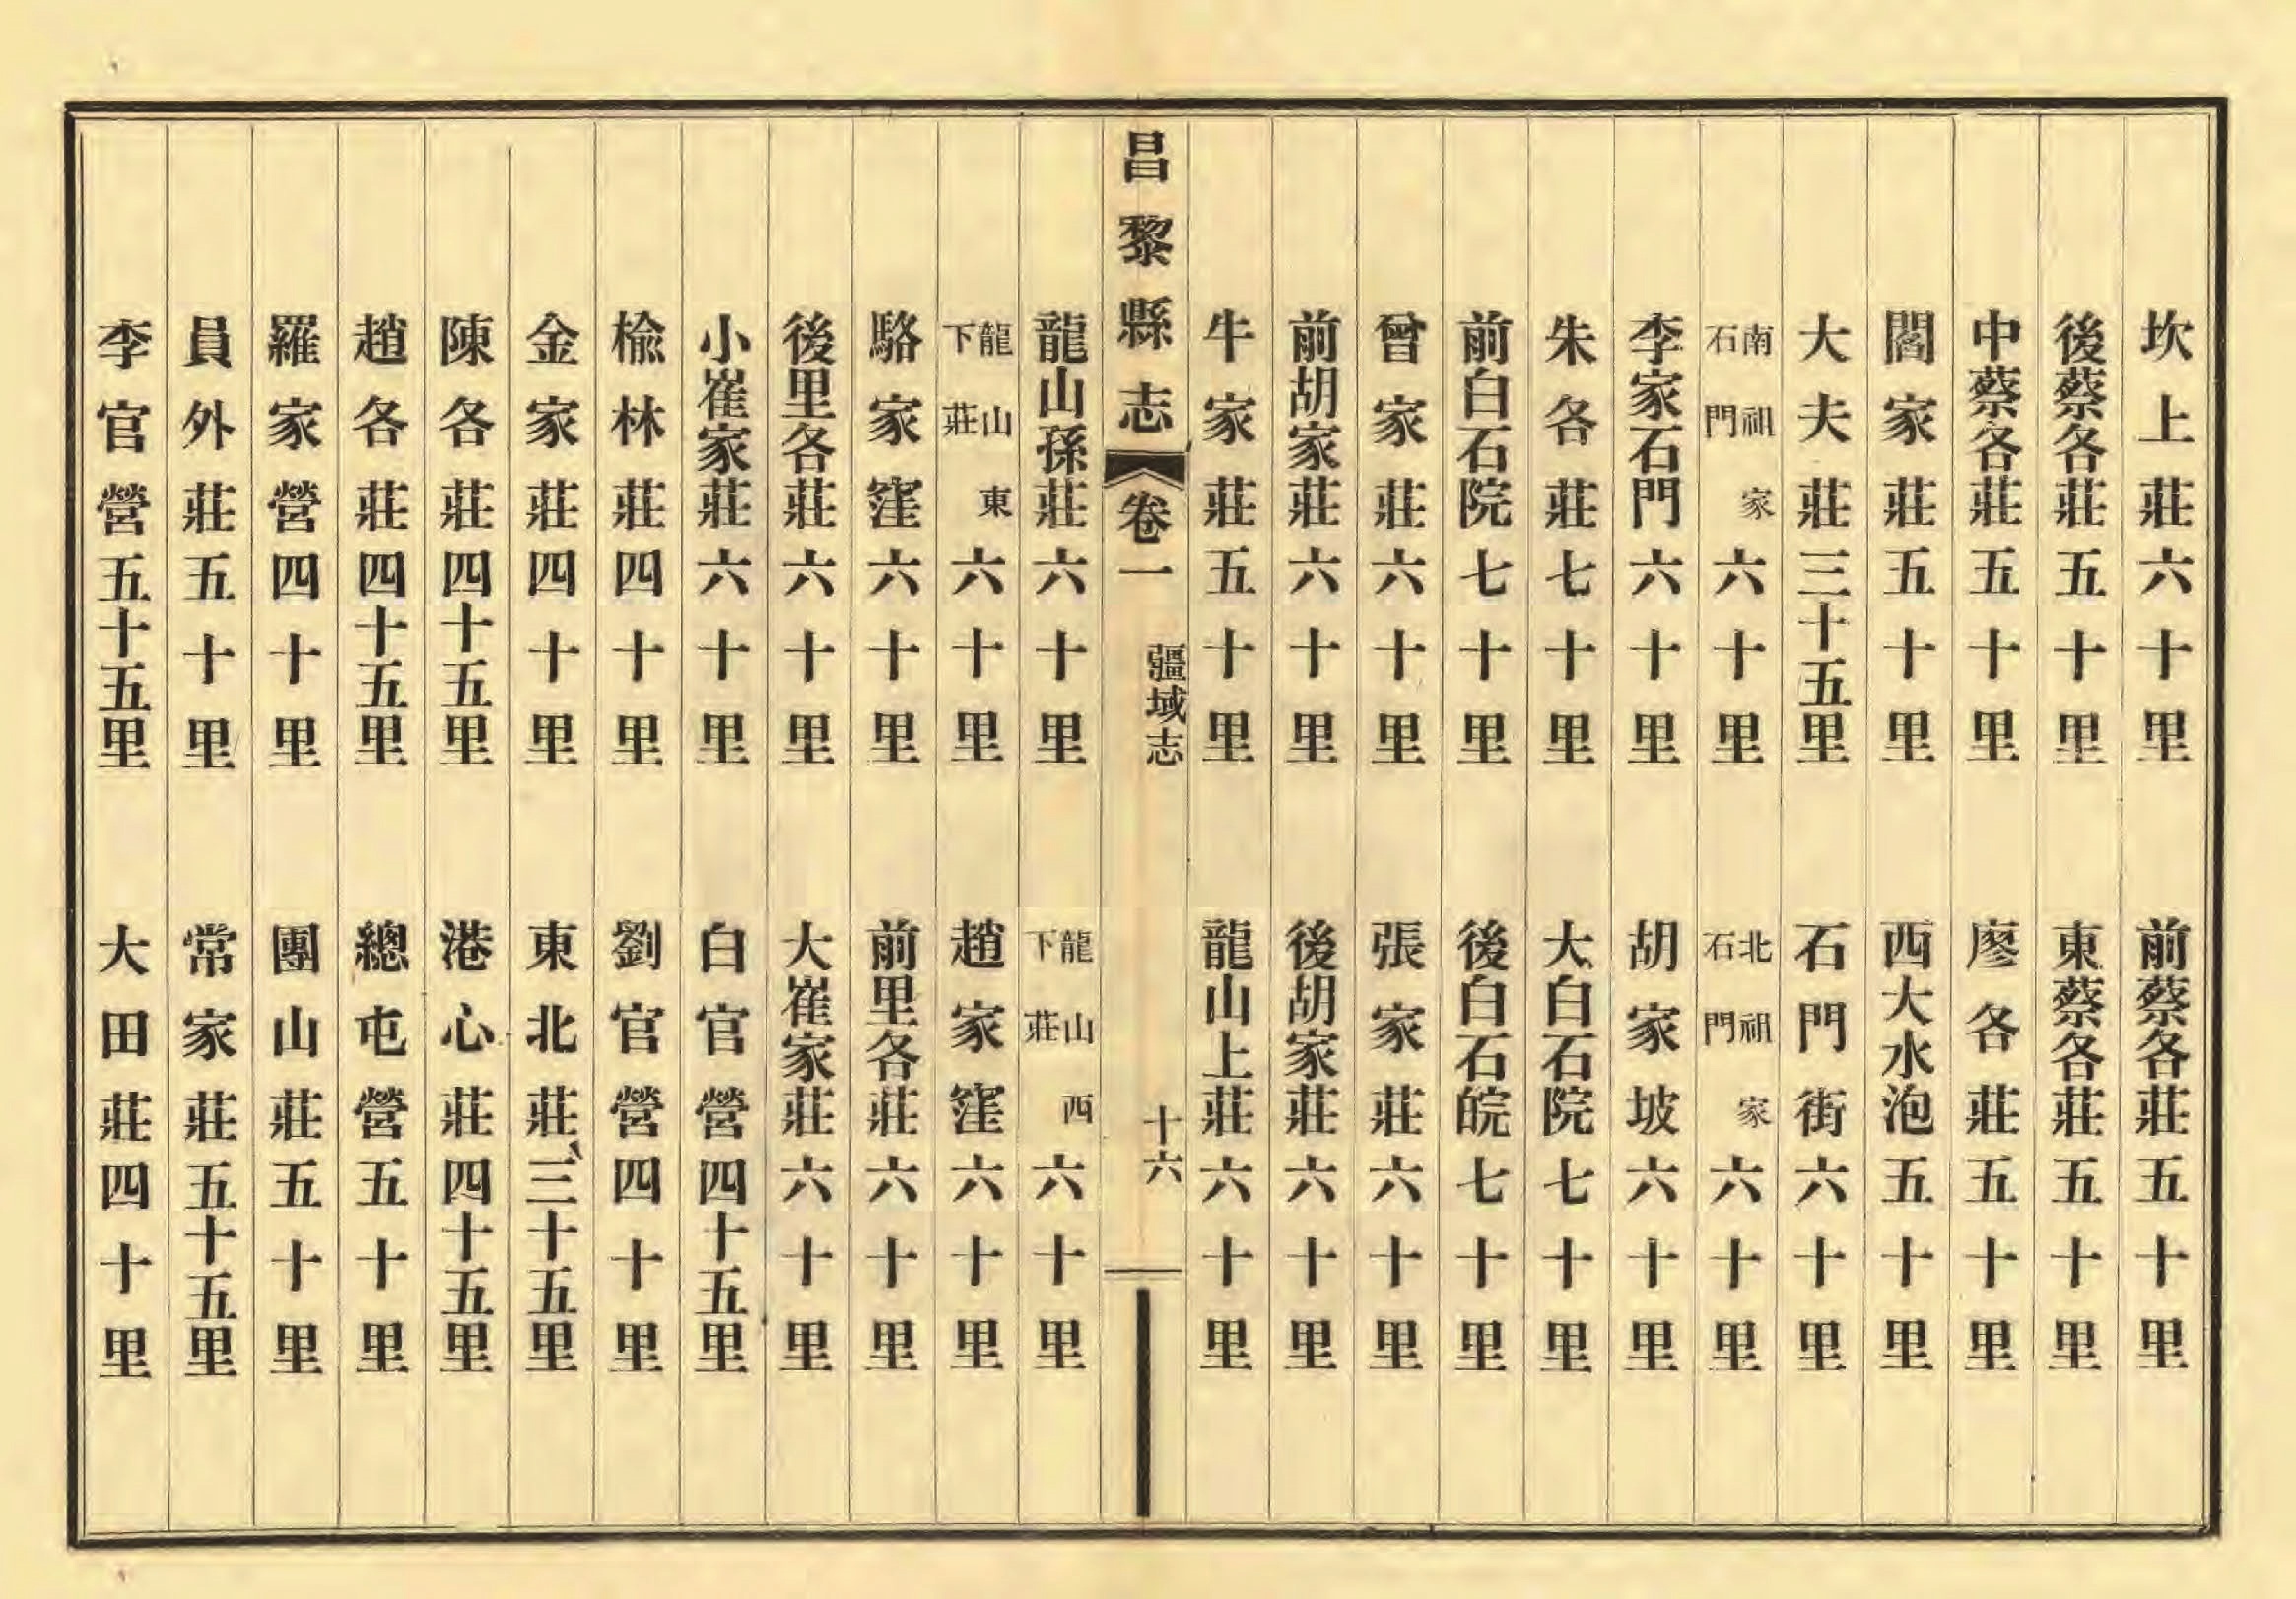 坎上莊六十里　前蔡各莊五十里
後蔡各莊五十里　東蔡各莊五十里
中蔡各莊五十里　廖各莊五十里
閻家莊五十里　西大水泡五十里
大夫莊三十五里　石門街六十里
南祖家石門六十里　北祖家石門六十里
李家石門六十里　胡家坡六十里
朱各莊七十里　大白石院七十里
前白石院七十里　後白石皖七十里
曾家莊六十里　張家莊六十里
前胡家莊六十里　後胡家莊六十里
牛家莊五十里　龍山上莊六十里
昌黎縣志　卷一　疆域志　十六
龍山孫莊六十里　龍山西下莊六十里
龍山東下莊六十里　趙家窪六十里
駱家窪六十里　前里各莊六十里
後里各莊六十里　大崔家莊六十里
小崔家莊六十里　白官營四十五里
榆林莊四十里　劉官營四十里
金家莊四十里　東北莊三十五里
陳各莊四十五里　港心莊四十五里
趙各莊四十五里　總屯營五十里
羅家營四十里　團山莊五十里
員外莊五十里　常家莊五十五里
李官營五十五里　大田莊四十里